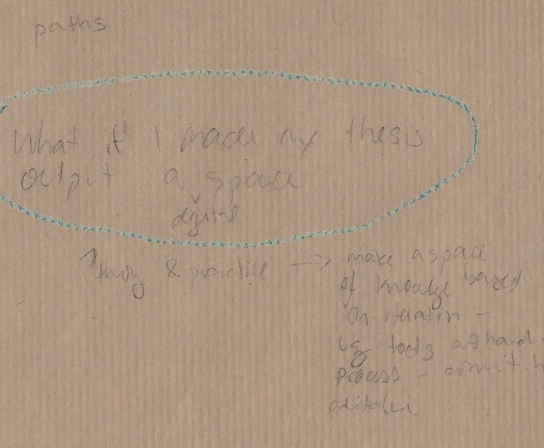 paths
What if I made my thesis
output a space
digital
theory & practice → make a space
of knowledge based
on iteration -
tools at hand -
process - commit